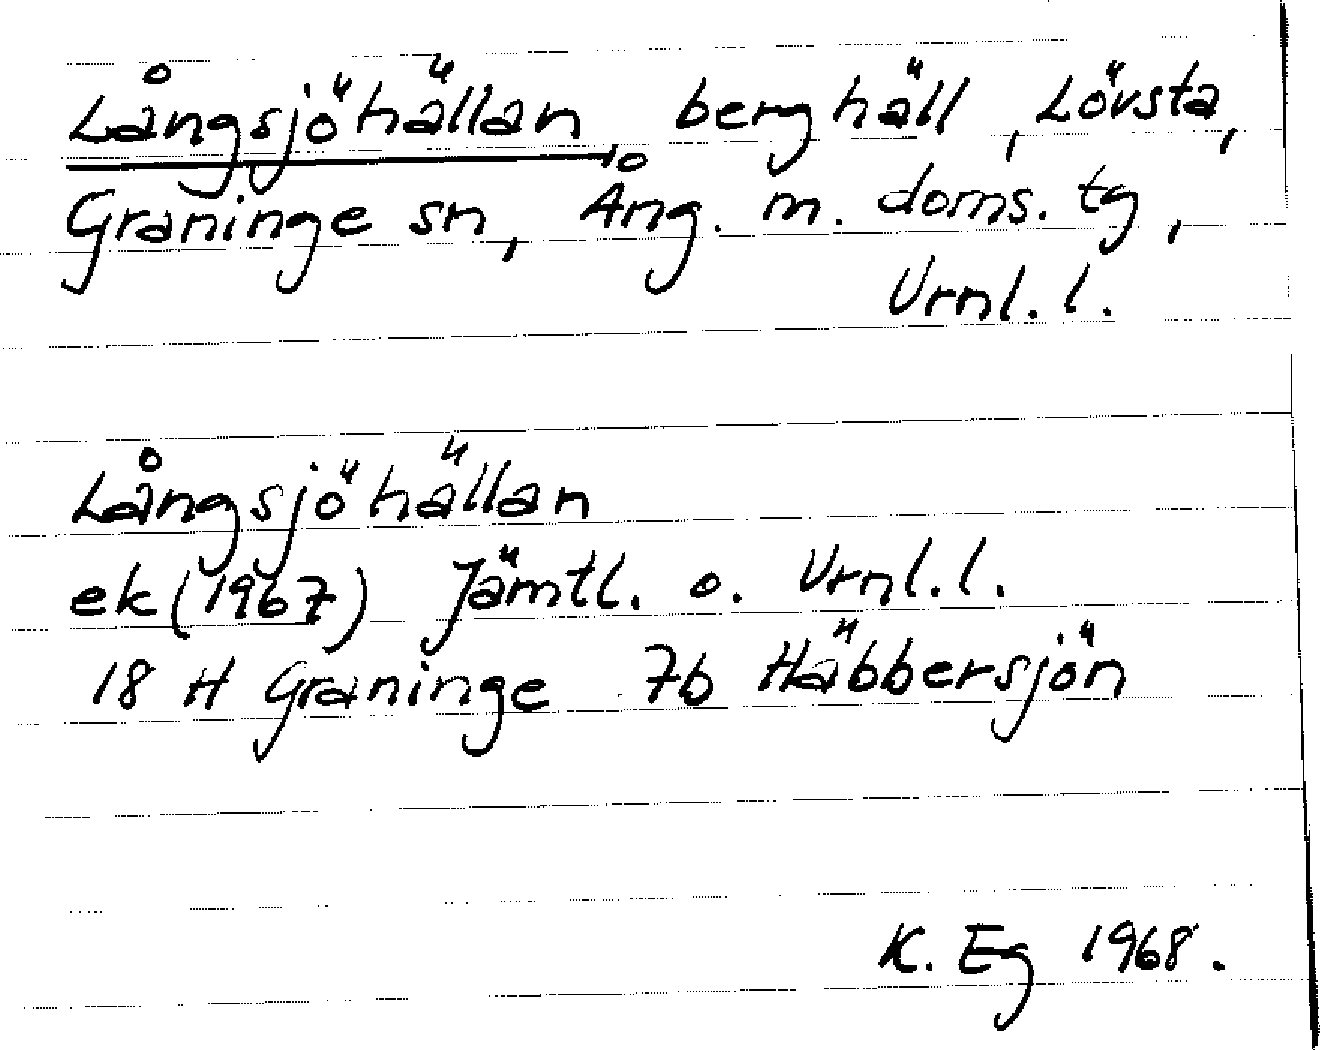 Långsjöhällan, berghäll, Lövsta,
Graninge sn, Ång. m. doms. tg,
Vrnl. l.
Långsjöhällan
ek (1967) Jämtl. o. Vrnl. l.
18 H Graninge 7b Häbbersjön
K. Eg 1968.